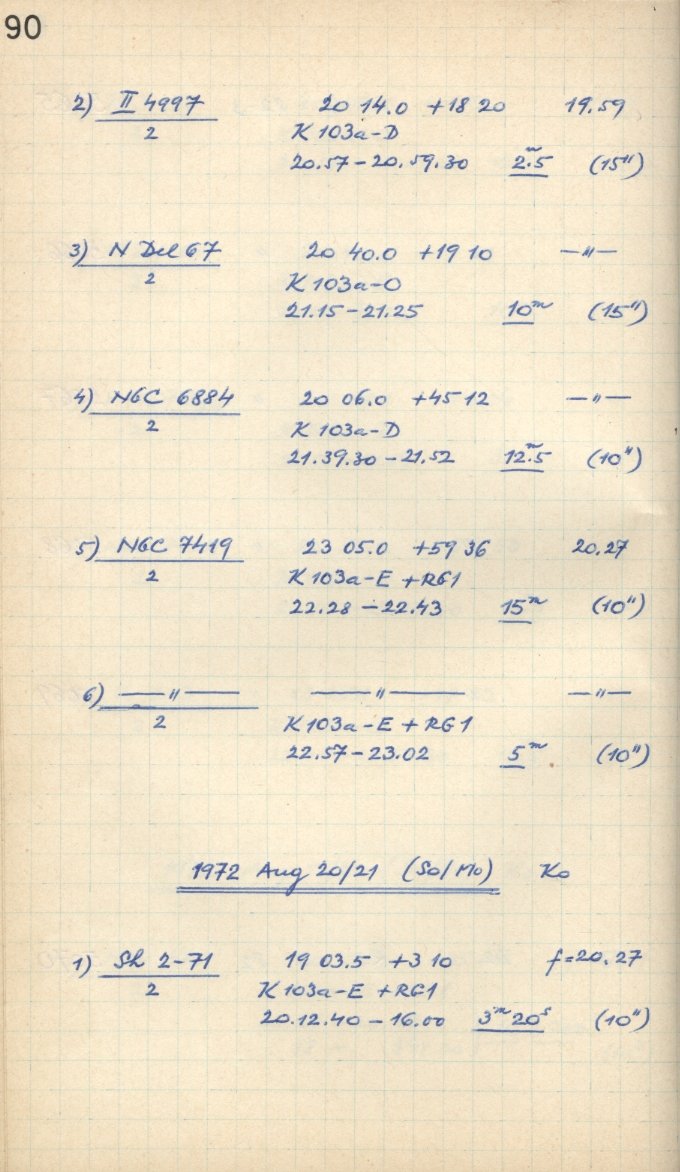 90
2) II 4997 20 14.0 +18 20 19.59
2 K 103a-D
20.57 - 20.59.30 2.ᵐ5 (15")
3) N Del 67 20 40.0 +19 10 —"—
2 K 103a-O
21.15 - 21.25 10ᵐ (15")
4) NGC 6884 20 06.0 +45 12 —"—
2 K 103a-D
21.39.30 - 21.52 12.ᵐ5 (10")
5) NGC 7419 23 05.0 +59 36 20.27
2 K 103a-E + RG1
22.28 - 22.43 15ᵐ (10")
6) —"— —"— —"—
2 K 103a-E + RG1
22.57 - 23.02 5ᵐ (10")
1972 Aug 20/21 (So/Mo) Ko
1) Sh 2-71 19 03.5 +3 10 f=20.27
2 K 103a-E + RG1
20.12.40 - 16.00 3ᵐ 20ˢ (10")